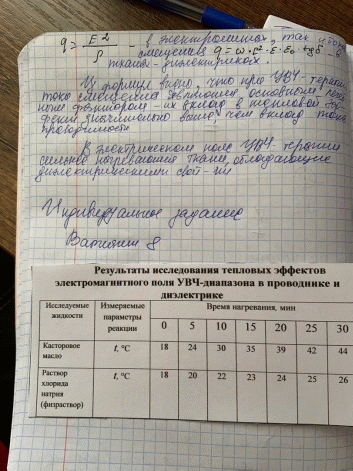 q = E²/ρ - в электролитах, так и токи
смещения q = ω·E²·ε·ε₀·tgδ
тканях-диэлектриках.
Из формул видно, что при УВЧ-терапии
токи смещения являются основным
фактором - их вклад в тепловой
значительно выше, чем вклад токов
проводимости
В электрическом поле УВЧ-терапии
сильнее нагреваются ткани, обладающие
диэлектрическими свой-ми
Индивидуальное задание
Вариант 8
Результаты исследования тепловых эффектов
электромагнитного поля УВЧ-диапазона в проводнике и
диэлектрике
Исследуемые жидкости | Измеряемые параметры реакции | Время нагревания, мин
0 5 10 15 20 25 30
Касторовое масло | t, °C | 18 24 30 35 39 42 44
Раствор хлорида натрия (физраствор) | t, °C | 18 20 22 23 24 25 26